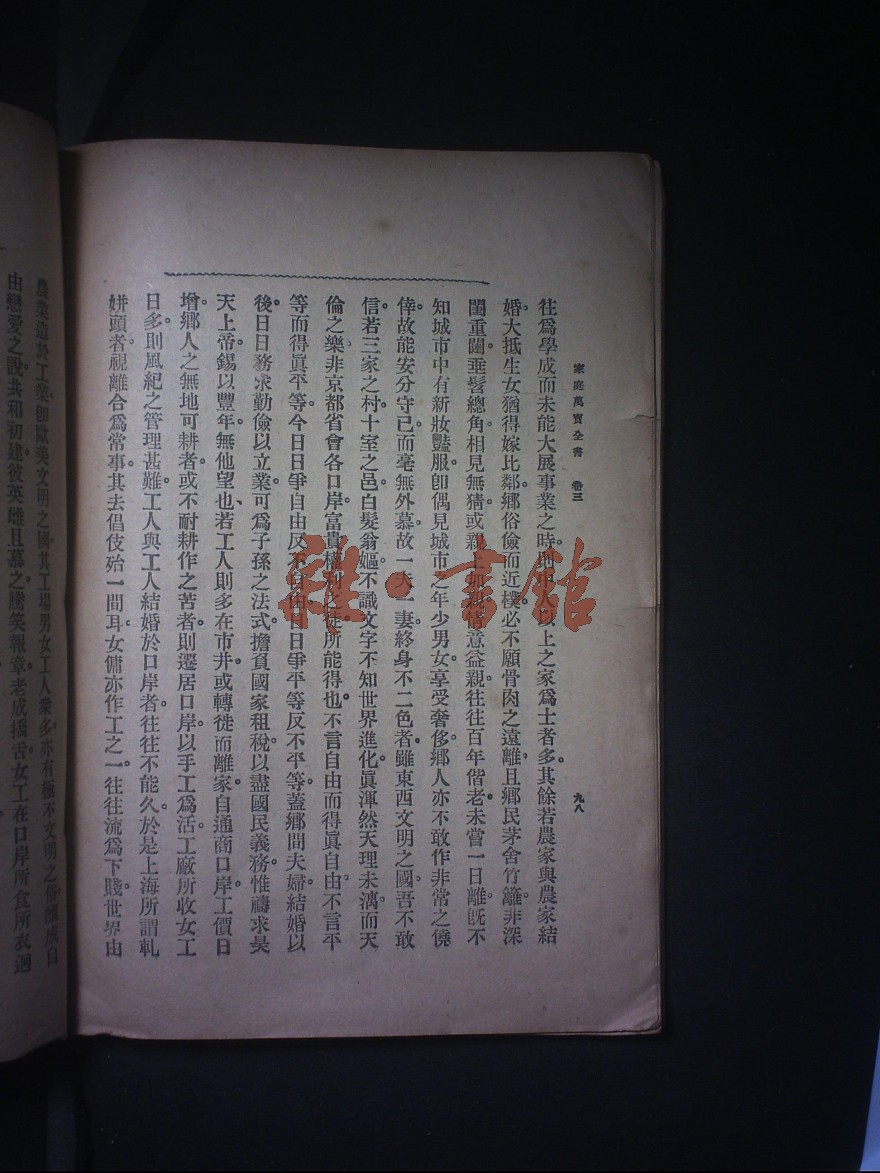 家庭萬寶全書　卷三　九八
往爲學成而未能大展事業之時。則中人以上之家爲士者多。其餘若農家與農家結
婚。大抵生女猶得嫁比鄰。鄉俗儉而近樸。必不願骨肉之遠離。且鄉民茅舍竹籬。非深
閨重闥。垂髫總角。相見無猜。或親上加親。情意益親。往往百年偕老。未嘗一日離。旣不
知城市中有新妝豔服。卽偶見城市之年少男女。享受奢侈。鄉人亦不敢作非常之僥
倖。故能安分守已。而毫無外慕。故一夫一妻。終身不二色者。雖東西文明之國。吾不敢
信。若三家之村。十室之邑。白髮翁嫗。不識文字。不知世界進化。眞渾然天理未漓。而天
倫之樂。非京都省會各口岸富貴權利之徒所能得也。不言自由而得眞自由。不言平
等而得眞平等。今日日爭自由反不自由。日日爭平等反不平等。蓋鄉間夫婦結婚以
後。日日務求勤儉以立業。可爲子孫之法式。擔負國家租稅。以盡國民義務。惟禱求昊
天上帝。錫以豐年。無他望也、若工人則多在市井。或轉徙而離家。自通商口岸。工價日
增。鄉人之無地可耕者。或不耐耕作之苦者。則遷居口岸。以手工爲活。工廠所收女工
日多。則風紀之管理甚難。工人與工人結婚於口岸者。往往不能久。於是上海所謂軋
姘頭者。視離合爲常事。其去倡伎殆一間耳。女傭亦作工之一。往往流爲下賤。世界由
農業造於工業。卽歐美文明之國。其工場男女工人衆多。亦有極不文明之俗。釀成自
由戀愛之說。共和初建。彼英雌且慕之。騰笑報章。老成撟舌。女工在口岸。所食所衣。迥
雜·書館